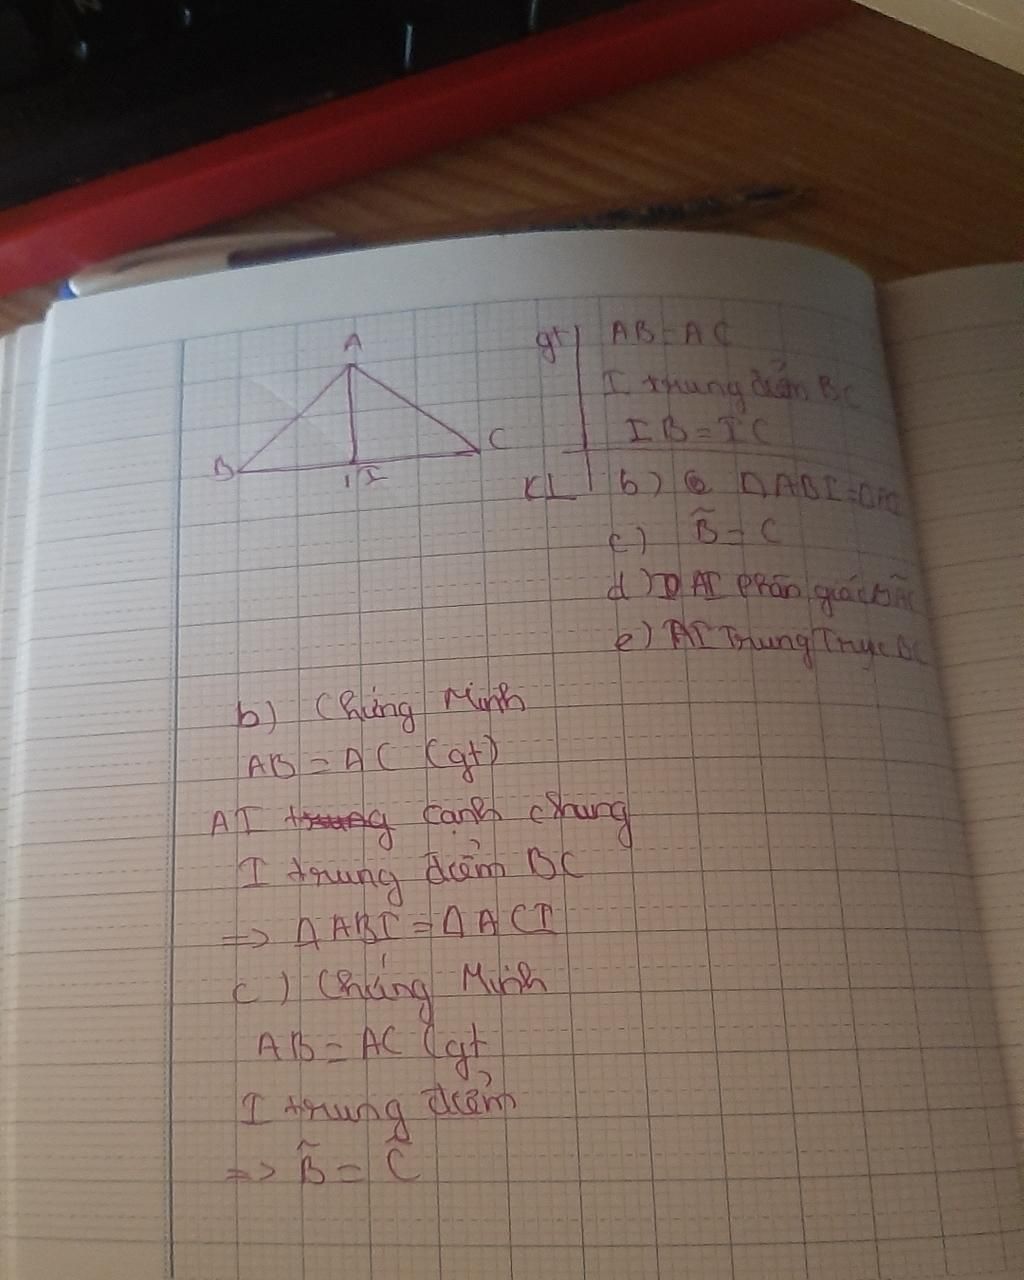 A
B
C
1 I
gt
AB = AC
I trung điểm BC
IB = IC
KL
b) ΔABI = 
c) B̃ = C
d) AI phân giác
e) AI Trung Trực BC
b) Chứng Minh
AB = AC (gt)
AI cạnh chung
I trung điểm BC
=> ΔABI = ΔACI
c) Chứng Minh
AB = AC (gt
I trung điểm
=> B̃ = C̃